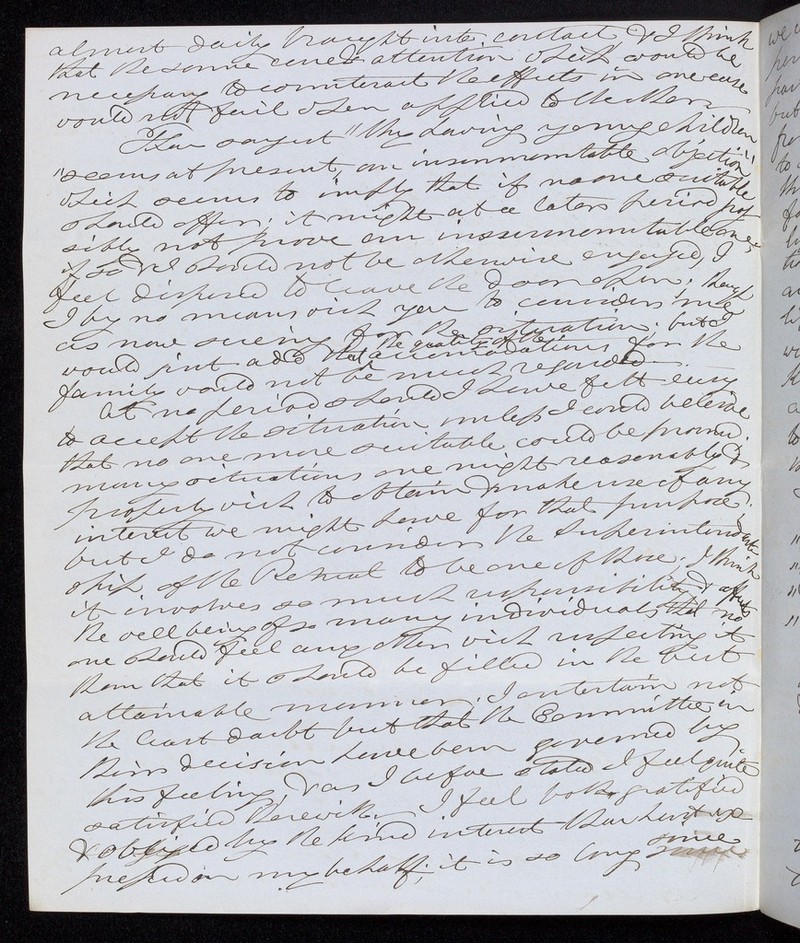 almost daily brought into contact & I think
that the same care & attention which would be
necessary to counteract the effects in one case
would not fail when applied to the other
Thou sayest "Thy having young children
"seems at present, an insurmountable objection"
which seems to imply that if no one suitable
should offer; it might at a later period pos
sibly not prove an insurmountable one;
if so & I should not be otherwise engaged, I
feel disposed to leave the door open; though
I by no means wish you to consider me
as now suing for the situation; but I
would just add that the quality of the accommodations for the
family would not be much regarded.
At no period should I have felt easy
to accept the situation unless I could believe
that no one more suitable could be found;
many situations one might reasonably &
properly wish to obtain & make use of any
interest we might have for that purpose;
but I do not consider the Superintendent
ship of the Retreat to be one of those; I think
it involves so much responsibility & affects
the well being of so many individuals that no
one should feel any other wish respecting it
than that it should be filled in the best
attainable manner. I entertain not
the least doubt but that the Committee in
their decision have been governed by
this feeling, & as I before stated I feel quite
satisfied therewith. I feel both gratified
& obliged by the kind interest thou hast ex
pressed on my behalf; it is so long since